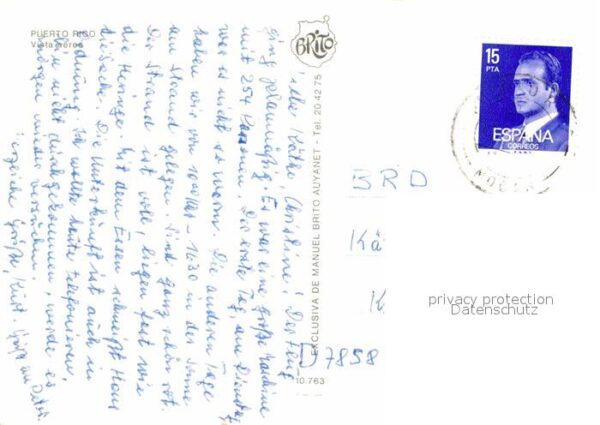 PUERTO RICO
Vista aérea
BRITO
Liebe Käthe, Christine! Der Flug
ging planmäßig. Es war eine große Maschine
mit 254 Personen. Der erste Tag, am Dienstag
war es nicht so warm. Die anderen Tage
haben wir von - 16.30 in der Sonne
am Strand gelegen. Sind ganz schön rot.
Der Strand ist voll, liegen fast wie
die Heringe. Mit dem Essen schimpft Hans
die Unterkunft ist auch in
Ordnung. Ich wollte heute telefonieren,
bin nicht durchgekommen, werde es
morgen wieder versuchen.
Herzliche Grüße, Kurt. Gruß an Detlef.
EXCLUSIVA DE MANUEL BRITO AUYANET - Tel. 20 42 75
10.763
15
PTA
ESPAÑA
CORREOS
BRD
Kä
K
D 7858
privacy protection
Datenschutz